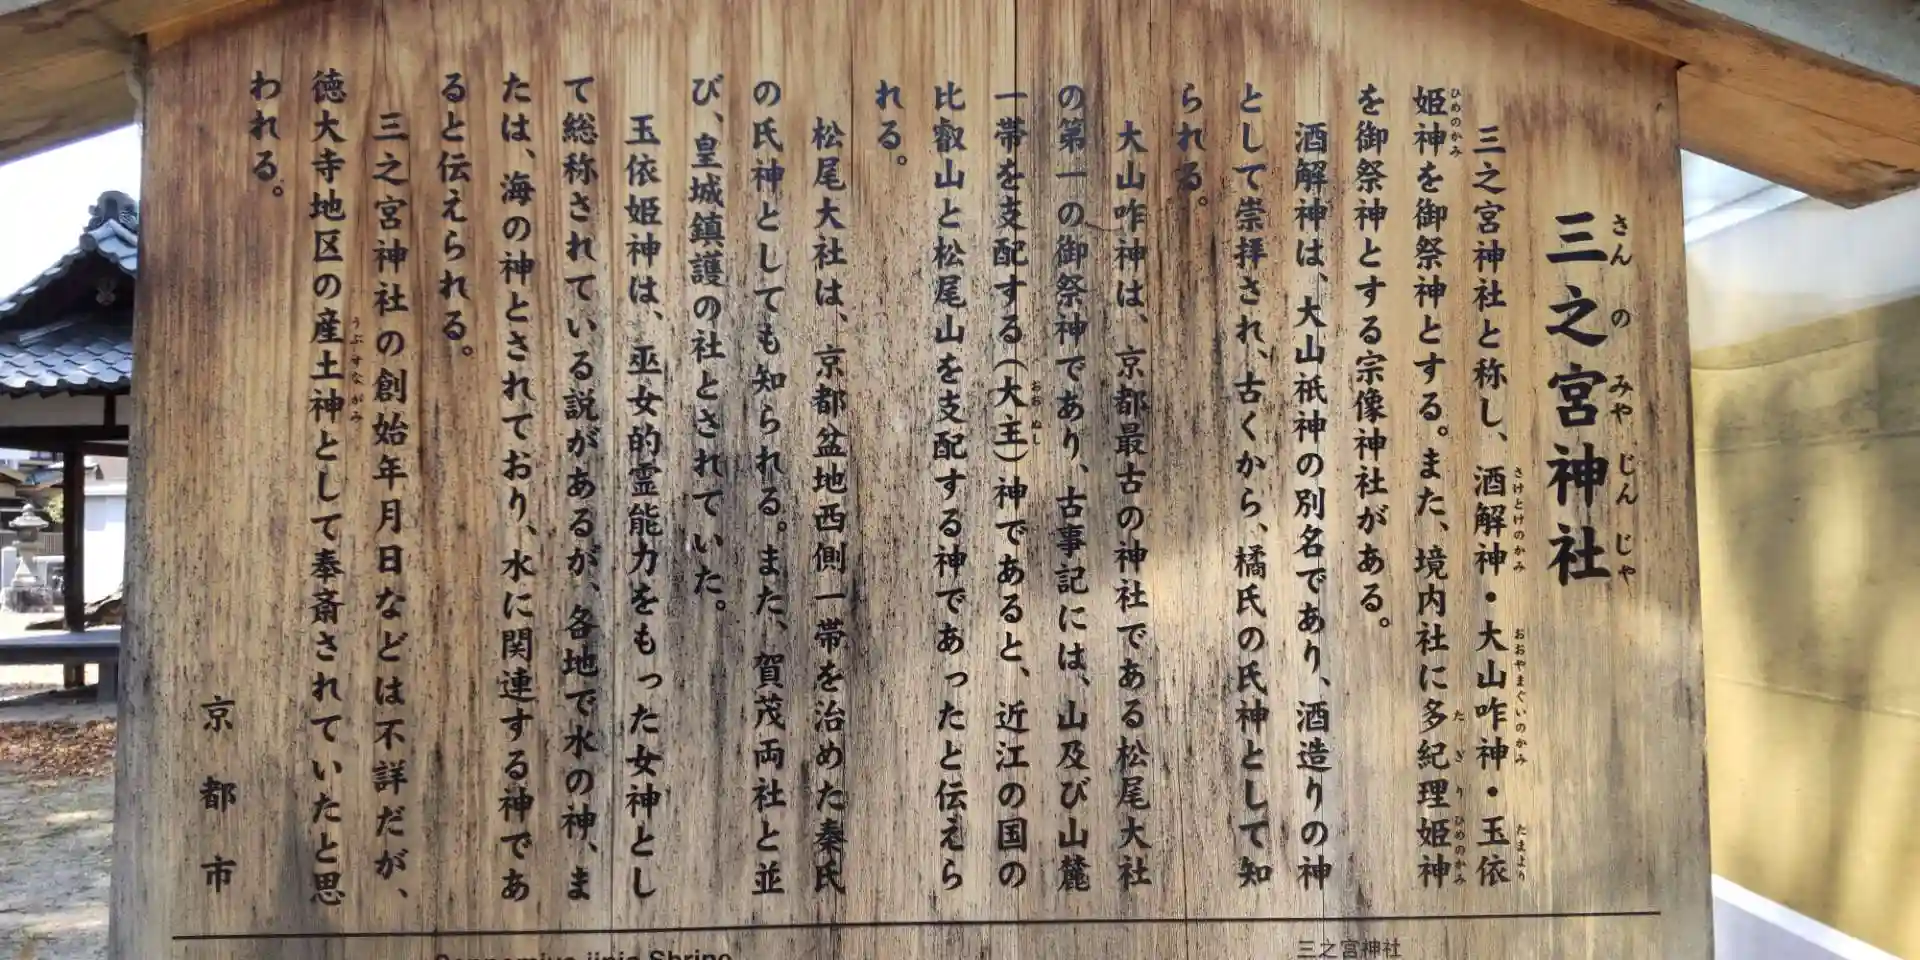 三之宮神社
さんのみやじんじゃ
三之宮神社と称し、酒解神・大山咋神・玉依
さけとけのかみ
おおやまぐいのかみ
たまより
姫神を御祭神とする。また、境内社に多紀理姫神
ひめのかみ
たぎりひめのかみ
を御祭神とする宗像神社がある。
酒解神は、大山祇神の別名であり、酒造りの神
として崇拝され、古くから、橘氏の氏神として知
られる。
大山咋神は、京都最古の神社である松尾大社
の第一の御祭神であり、古事記には、山及び山麓
一帯を支配する(大主)神であると、近江の国の
おおぬし
比叡山と松尾山を支配する神であったと伝えら
れる。
松尾大社は、京都盆地西側一帯を治めた秦氏
の氏神としても知られる。また、賀茂両社と並
び、皇城鎮護の社とされていた。
玉依姫神は、巫女的霊能力をもった女神とし
て総称されている説があるが、各地で水の神、ま
たは、海の神とされており、水に関連する神であ
ると伝えられる。
三之宮神社の創始年月日などは不詳だが、
徳大寺地区の産土神として奉斎されていたと思
うぶすながみ
われる。
京都市
三之宮神社